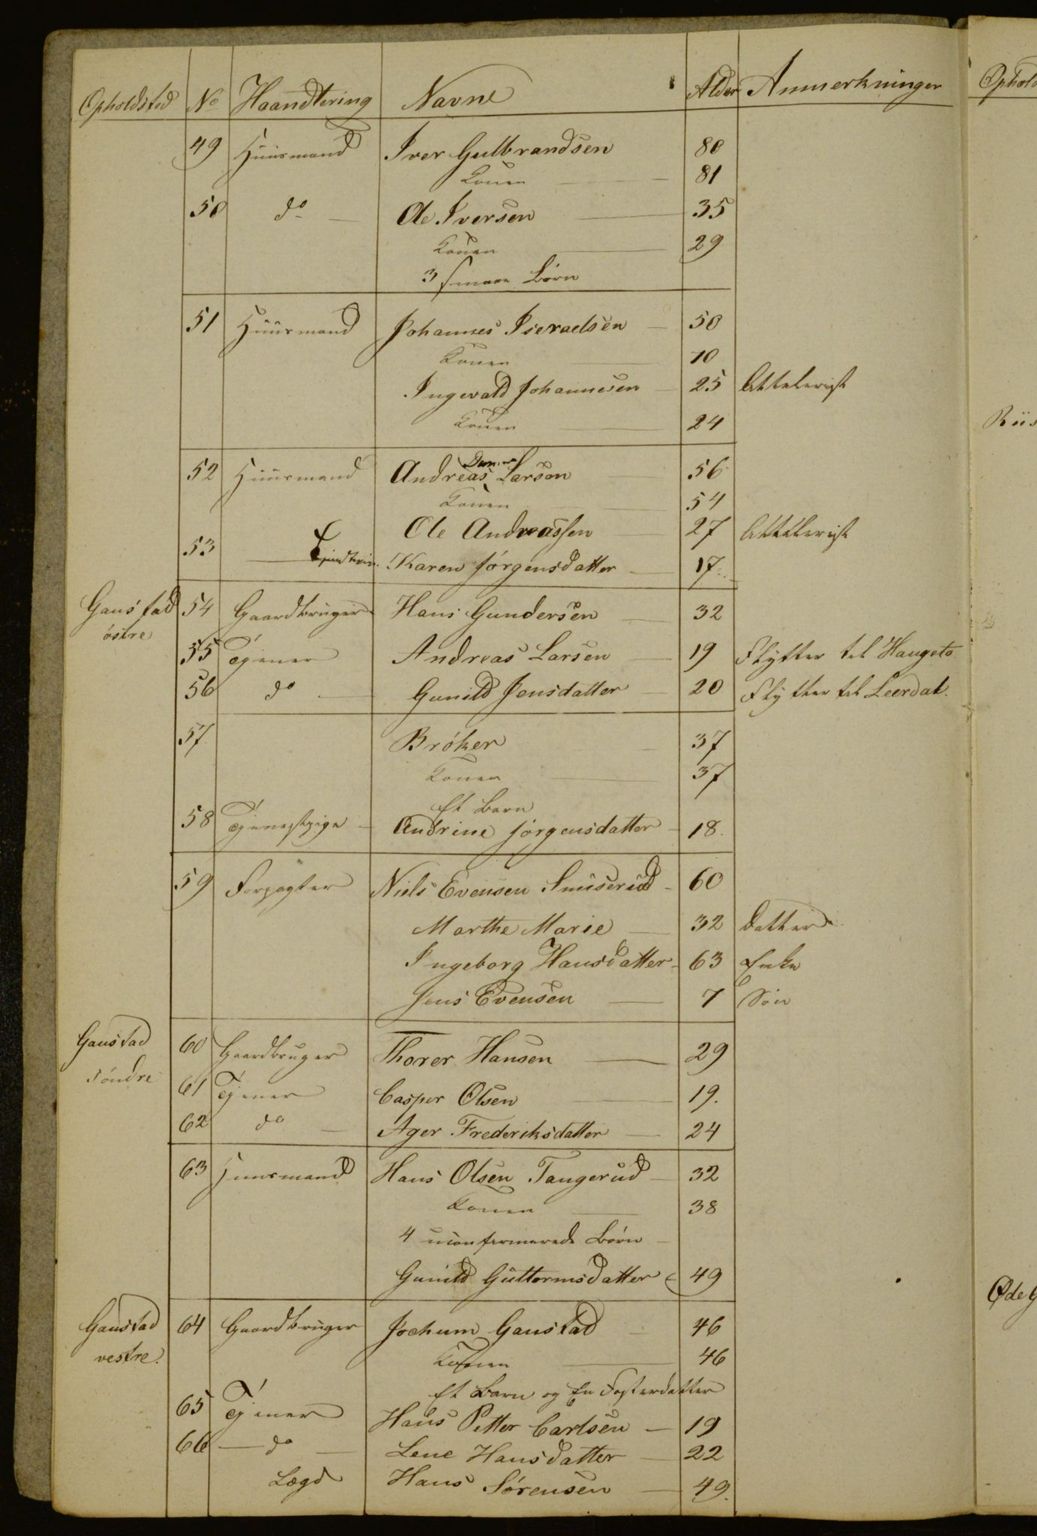 Opholdsted No Haandtering Navne Alder Anmerkninger
49 Huusmand Iver Gulbrandsen 80
Konen 81
50 do Ole Iversen 35
Konen 29
3 smaae Børn
51 Huusmand Johannes Iseraelsen 50
Konen 10
Ingevald Johannesen 25 Attelerist
Konen 24
52 Huusmand Andreas Larson 56
Konen 54
Ole Andreassen 27 Attelerist
53 Karen Jørgensdatter 17
Gaustad 54 Gaardbruger Hans Gundersen 32
østre
55 Tjener Andreas Larsen 19 Flytter til Haugsto
56 do Gunild Jensdatter 20 Flytter til Leerdal.
57 Brøker 37
Konen 37
Et Barn
58 Tjenestpige Andrine Jørgensdatter 18.
59 Forpagter Niels Evensen Smiserud 60
Marthe Marie 32 Datter
Ingeborg Hansdatter 63 Enke
Jens Evensen 7 Søn
Gaustad 60 Gaardbruger Thorer Hansen 29
søndre
61 Tjener Casper Olsen 19.
62 do Ager Frederiksdatter 24
63 Huusmand Hans Olsen Tangerud 32
Konen 38
4 uconfermerede Børn
Gunild Guttormsdatter 49
Gaustad 64 Gaardbruger Jochum Gaustad 46
vestre.
Konen 46
Et Barn og En Fosterdatter
65 Tjener Hans Petter Carlsen 19
66 do Lene Hansdatter 22
Lægd Hans Sørensen 49.
Ophold
Riis
Øde G